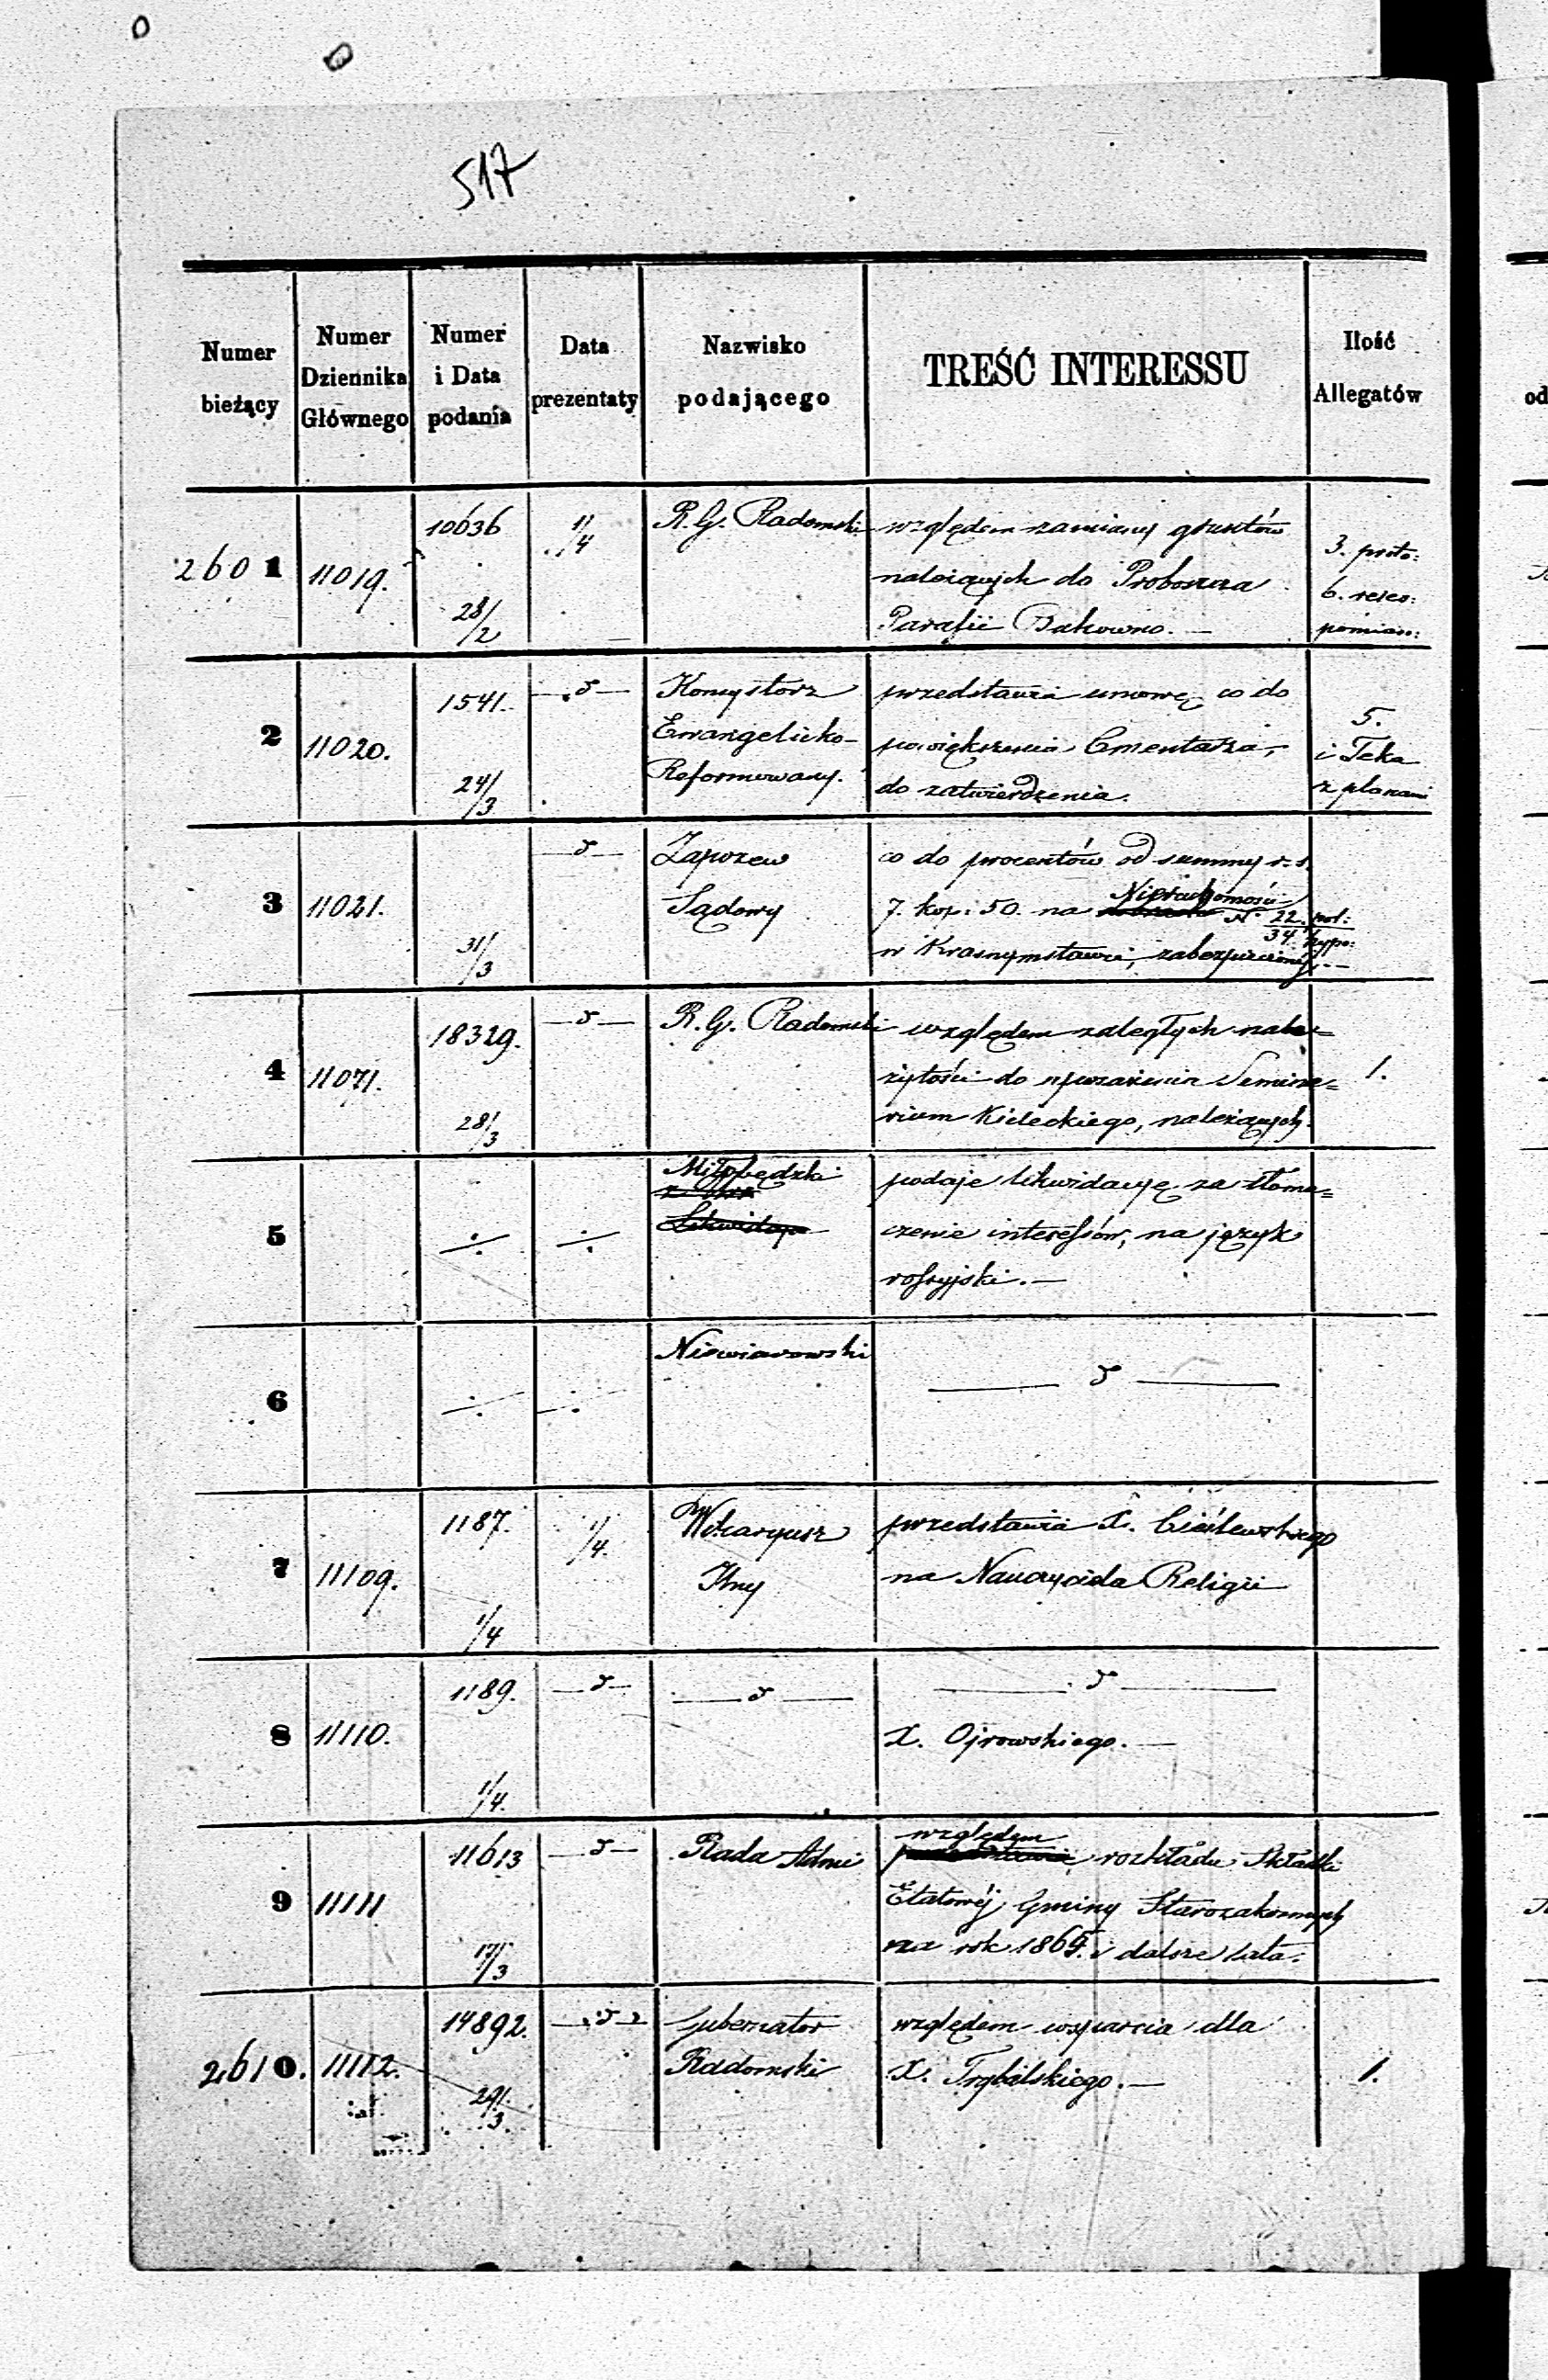 517
Numer bieżący
Numer Dziennika Głównego
Numer i Data podania
Data prezentaty
Nazwisko podającego
TREŚĆ INTERESSU
Ilość Allegatów
2601 11019. 10636 28/2 1/4 R. G. Radomski
względem zamiany gruntów
należących do Proboszcza
Parafii Bukowno. —
3. proto:
6. 
2 11020. 1541. 24/3 — d —
Konsystorz
Ewangelicko-
Reformowany.
przedstawia umowę co do
powiększenia Cmentarza,
do zatwierdzenia.
5.
i Teka
z planami
3 11021. 31/3 — d —
Zaporzew
Sądowy
co do procentów od summy r. s.
7. kop: 50. na Nieruchomości N. 22 pol: 34 hypo:
w Krasnymstawie, zabezpieczonéj. —
4 11071. 18329. 28/3 — d — R. G. Radomski
względem zaległych nale=
żytości do wyposażenia Semina=
rium Kieleckiego, należących.
1.
5 ÷ ÷ Miłobędzki
podaje likwidacyę za tłoma=
czenie interessów, na język
rossyjski. —
6 ÷ ÷
— d —
7 11109. 1187. 1/4 1/4
przedstawia X. Cieślewskiego
na Nauczyciela Religii
8 11110. 1189. 1/4 — d — — d — — d —
X. Ojrowskiego. —
9 11111 11613 17/3 — d — Rada Admi
względem rozkładu Składki
Etatowéj Gminy Starozakonnych
na rok 1865. i dalsze lata.
2610. 11112. 14892. 29/3 — d —
Gubernator
Radomski
względem wsparcia dla
X. Trybilskiego. —
1.